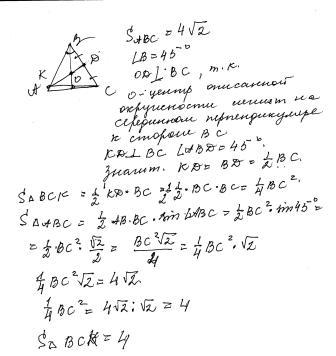 B
K
D
O
A
C
S_ABC = 4√2
∠B = 45°
OD ⊥ BC, т.к.
O-центр описанной
окружности лежит на
серединном перпендикуляре
к стороне BC
KD ⊥ BC ∠ABD = 45°.
значит. KD = BD = 1/2 BC.
S△BCK = 1/2 KD · BC = 1/2 · 1/2 · BC · BC = 1/4 BC².
S△ABC = 1/2 AB · BC · sin∠ABC = 1/2 BC² · sin45° =
= 1/2 BC² · √2/2 = BC²√2/4 = 1/4 BC² · √2
1/4 BC²√2 = 4√2
1/4 BC² = 4√2 : √2 = 4
S△BCK = 4